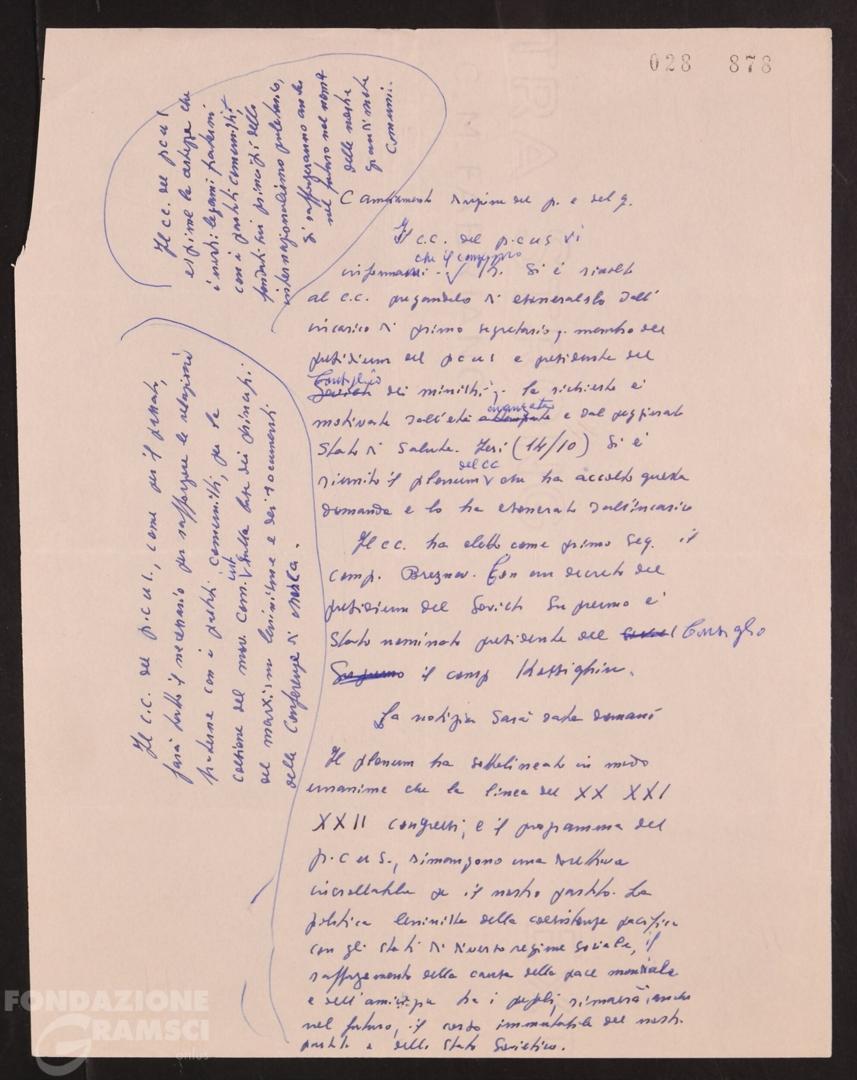 028 878
Cambiamento direzione del p. e del g.
Il c.c. del p.c.u.s. vi
che il compagno
informa . Si è rivolto
al c.c. pregandolo di esonerarlo dall'
incarico di primo segretario, membro del
presidium del pcus e presidente del
Consiglio
Soviet dei ministri; la richiesta è
avanzata
motivata dall'età e dal peggiorato
stato di salute. Ieri (14/10) si è
del CC
riunito il plenum che ha accolto questa
domanda e lo ha esonerato dall'incarico
Il cc. ha eletto come primo seg. il
comp. Breznev. Con un decreto del
presidium del Soviet Supremo è
stato nominato presidente del Soviet Consiglio
Supremo il comp Kossighin.
La notizia sarà data domani
Il plenum ha sottolineato in modo
unanime che la linea del XX XXI
XXII congressi, e il programma del
p.c.u.s., rimangono una direttiva
incrollabile pe il nostro partito. La
politica leninista della coesistenza pacifica
con gli stati di diverso regime sociale, il
rafforzamento della causa della pace mondiale
e dell'amicizia tra i popoli, rimarrà, anche
nel futuro, il corso immutabile del nostro
partito e dello Stato Sovietico.
Il C.C. del p.c.u.s., come per il passato,
farà tutto il necessario per rafforzare le relazioni
fraterne con i partiti comunisti, per la
int
coesione del mov. com. sulla base dei principi
del marxismo leninismo e dei documenti
della Conferenza di Mosca.
Il cc. del pcus
esprime la certezza che
i nostri legami fraterni
con i partiti comunisti
fondati sui principi dello
internazionalismo proletario,
si rafforzeranno anche
nel futuro nel nome
delle nostre
grandi mete
comuni.
FONDAZIONE
GRAMSCI
onlus